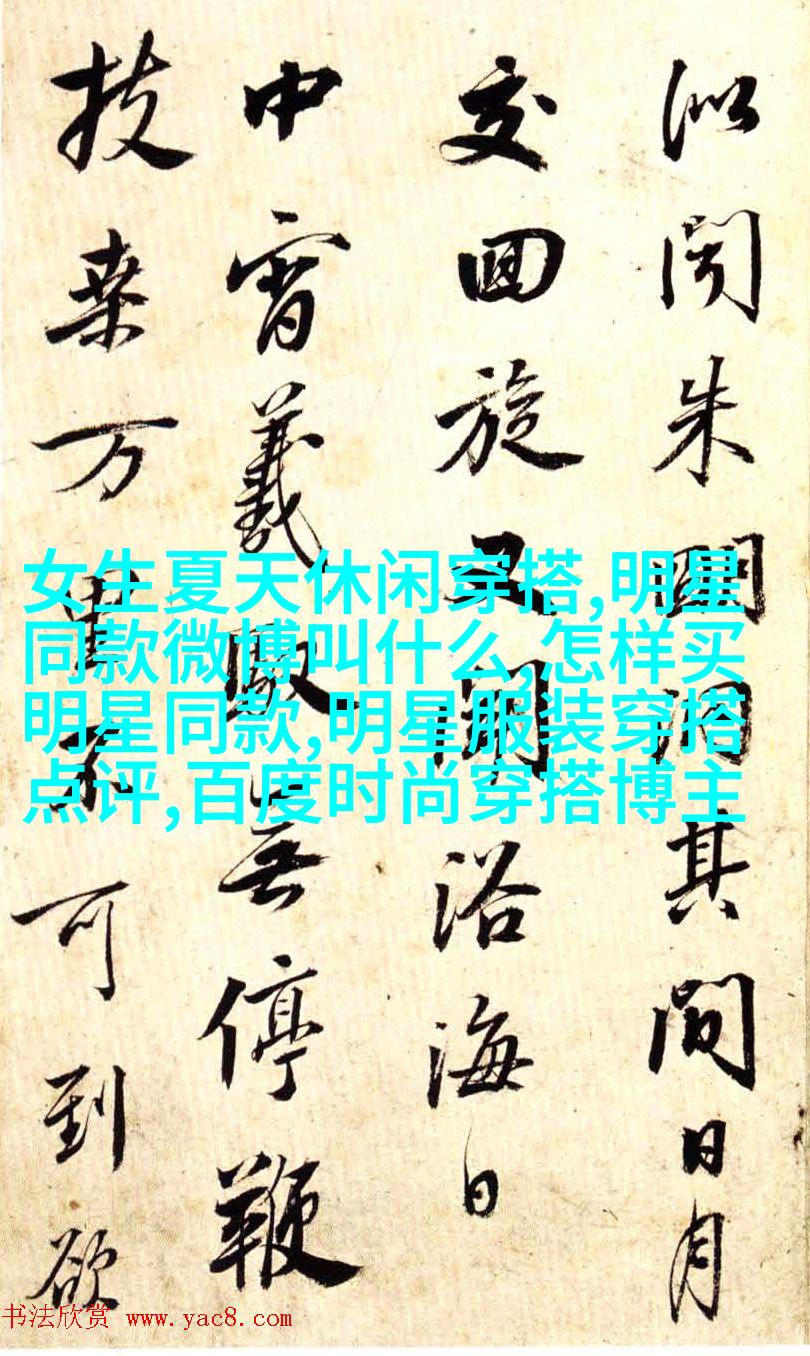 似闻朱明洞其間日月
交回旋又浴海日
中宵羲馭無停鞭
扶桒万里不可到欲
女生夏天休闲穿搭,明星
同款微博叫什么,怎样买
明星同款,明星服装穿搭
点评,百度时尚穿搭博主
书法欣赏 www.yac8.com